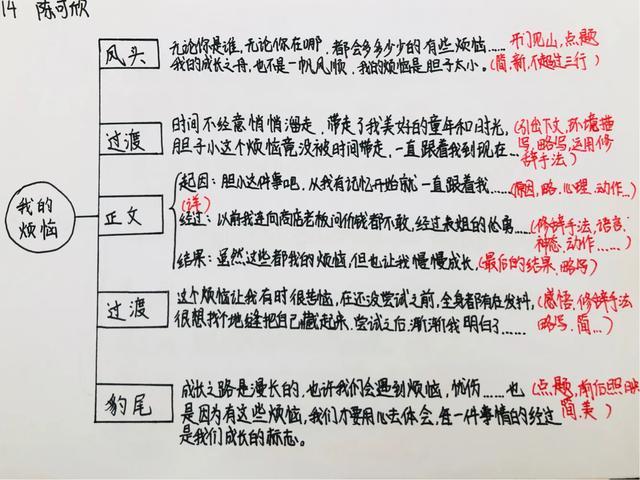 14 陈可欣
我的
烦恼
凤头
无论你是谁,无论你在哪,都会多多少少的有些烦恼……开门见山,点题
我的成长之舟,也不是一帆风顺,我的烦恼是胆子太小。(简,新,不超过三行)
过渡
时间不经意悄悄溜走,带走了我美好的童年和时光,(引出下文,环境描
胆子小这个烦恼竟没被时间带走,一直跟着我到现在…写,略写,运用修
辞手法)
正文
(详)
起因:胆小这件事吧,从我有记忆开始就一直跟着我……(原因,略,心理,动作…)
经过:以前我连向商店老板问价钱都不敢,经过表姐的怂勇……(修辞手法,语言,
神态,动作……)
结果:虽然这些都我的烦恼,但也让我慢慢成长,(最后的结果,略写)
过渡
这个烦恼让我有时很苦恼,在还没尝试之前,全身都有在发抖,(感悟,修辞手法
很想找个地缝把自己藏起来,尝试之后,渐渐我明白了……略写,简…)
豹尾
成长之路是漫长的,也许我们会遇到烦恼,忧伤……也(点题,前后照映
是因为有这些烦恼,我们才要用心去体会,每一件事情的经过简,美)
是我们成长的标志。